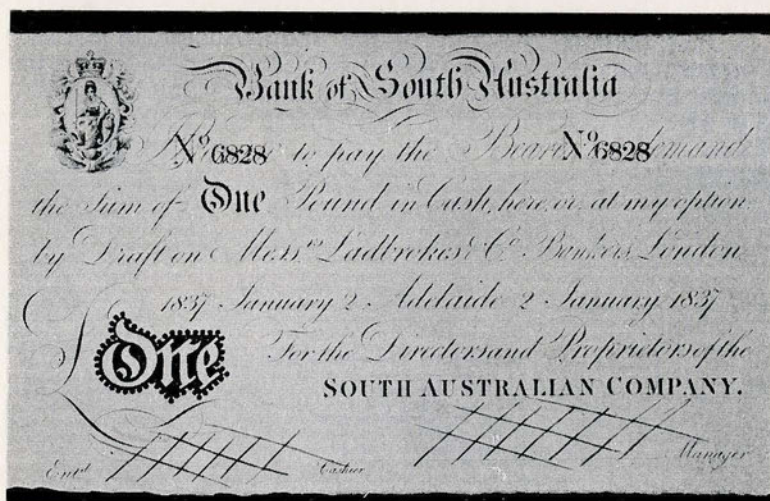 Bank of South Australia
Nº 6828 to pay the Bearer Nº 6828 demand
the Sum of One Pound in Cash, here, or, at my option
by Draft on Mess.rs Ladbrokes & Cº Bankers, London
1837 January 2 Adelaide 2 January 1837
£ One For the Directors and Proprietors of the
SOUTH AUSTRALIAN COMPANY.
Ent.d Cashier Manager